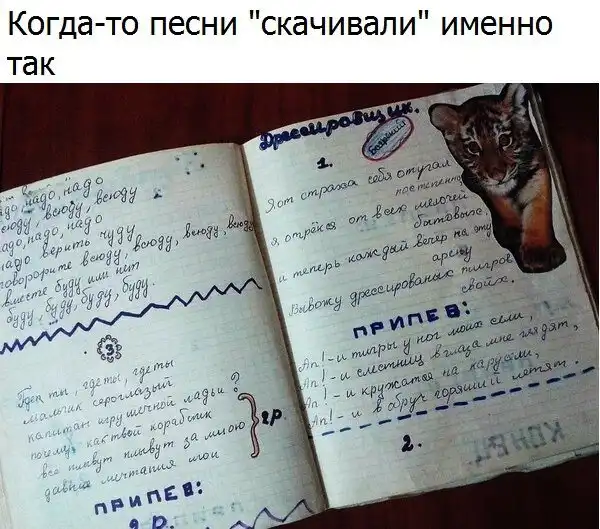 Когда-то песни "скачивали" именно
так
надо, надо
всюду, всюду, всюду
надо, надо, надо
верить чуду
всюду, всюду, всюду, всюду
вместе буду или нет
буду, буду, буду, буду.
3
Где ты, где ты, где ты
мальчик сероглазый
капитан игрушечной ладьи?
почему, как твой кораблик
все плывут плывут за мною
давние мечтания мои
2р.
ПРИПЕВ:
2 р.
Дрессировщик.
Боярский
1.
Я от страха себя отучал
постепенно
я, отрёкся от всех мелочей
бытовых.
и теперь каждый вечер на эту
арену
Вывожу дрессированых тигров
своих.
ПРИПЕВ:
Ап!-и тигры у ног моих сели,
Ап!-и с лестниц в глаза мне глядят,
Ап!-и кружатся на карусели,
Ап!-и в обруч горящий летят.
2.
КОНЕЦ